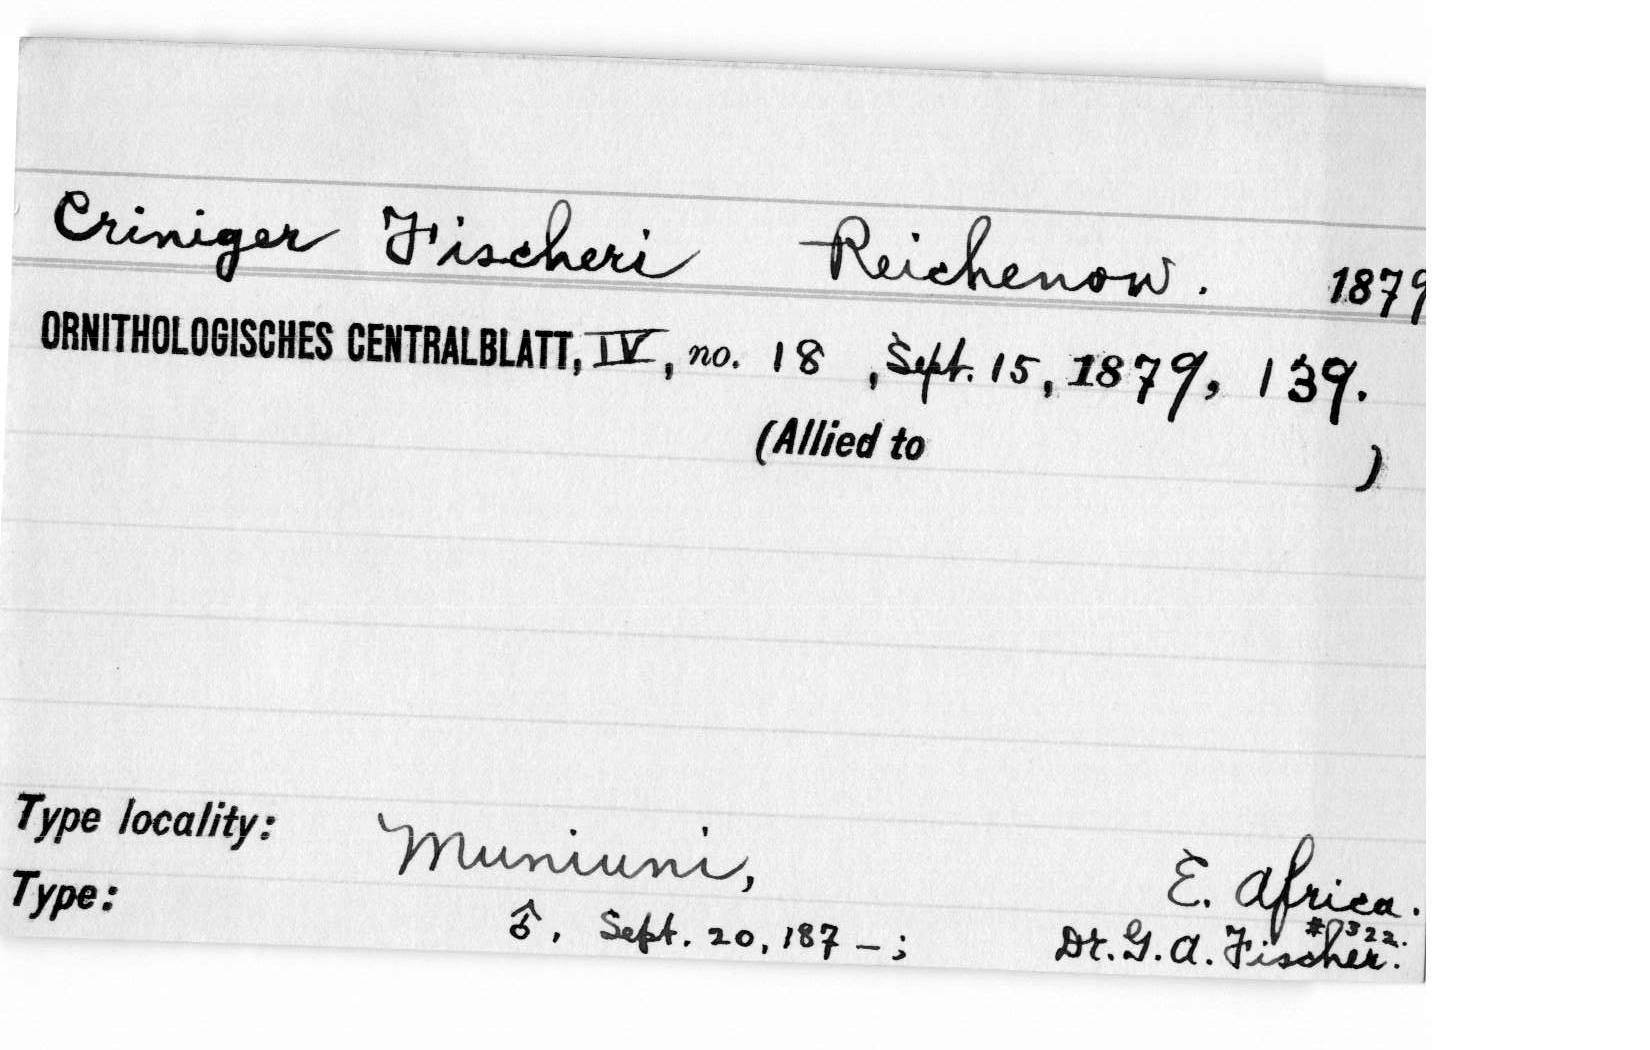 Criniger Fischeri Reichenow. 1879
ORNITHOLOGISCHES CENTRALBLATT, IV, no. 18, Sept. 15, 1879, 139.
(Allied to )
Type locality: Muniuni, E. Africa.
Type: ♂, Sept. 20, 187–; Dr. G. A. Fischer. #322.